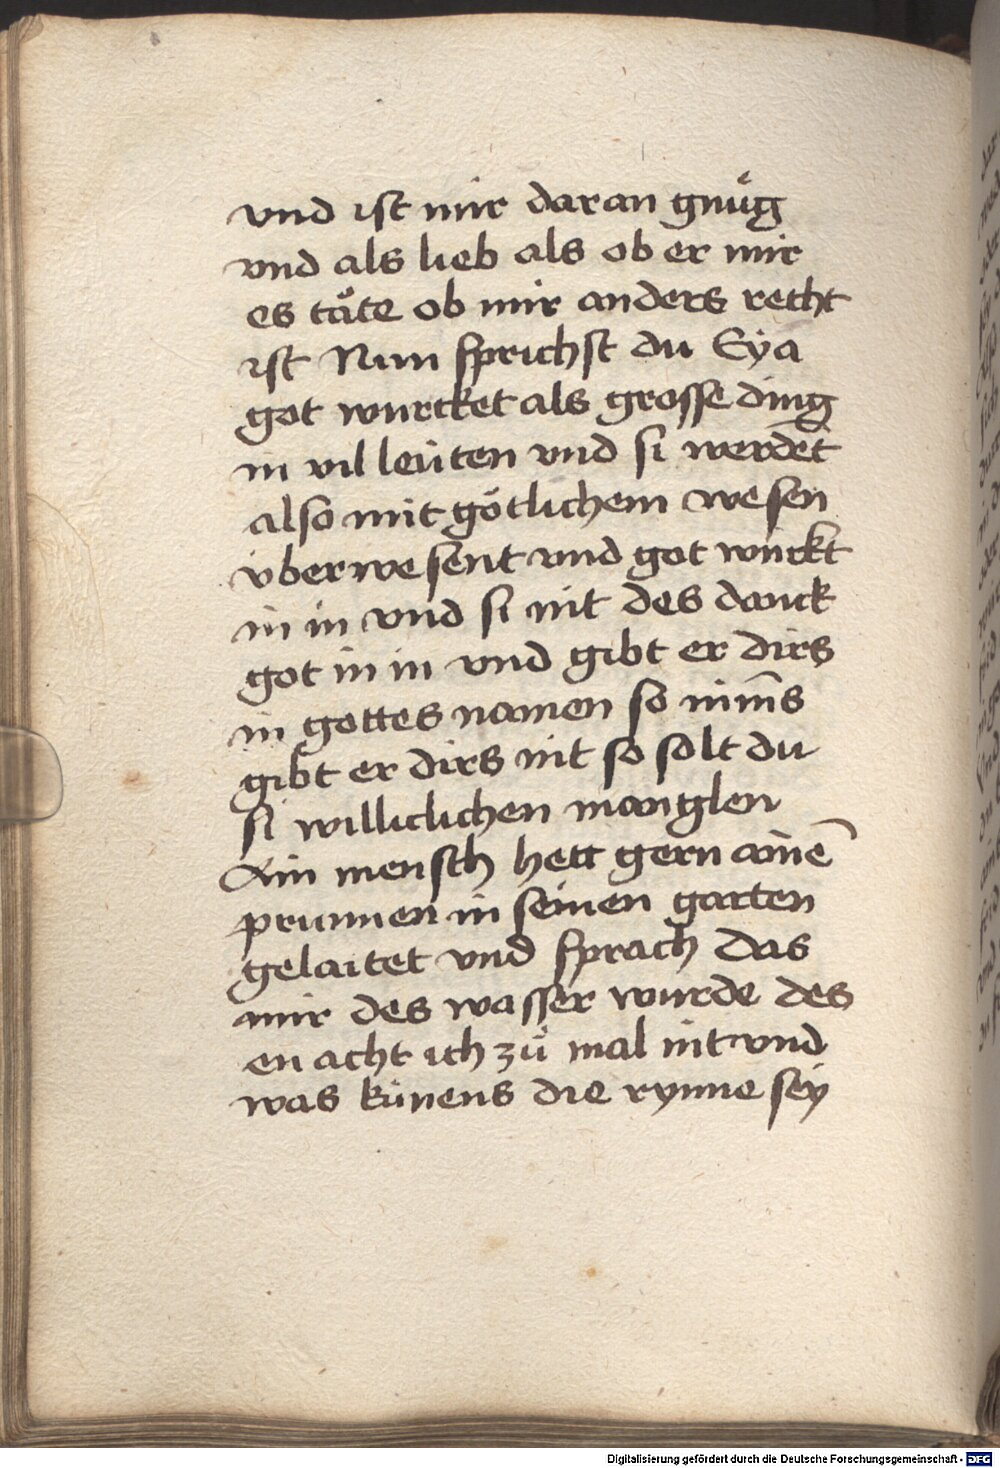 vnd ist mir daran gnuͤg
vnd als lieb als ob er mir
es taͤte ob mir anders recht
ist Nun sprichst du Eya
got wurcket als grosse ding
in vil leüten vnd si werdēt
also mit götlichem wesen
vberwesent vnd got wurckt
in in vnd si nit des danck
got in in vnd gibt er dirs
in gottes namen so nim̄s
gibt er dirs nit so solt du
si williclichen manglen
Ain mensch hett gern ainē
prunnen in seinen garten
gelaitet vnd sprach das
mir des wasser wurde des
en acht ich zuͦ mal nit vnd
was künens die rynne sey
Digitalisierung gefördert durch die Deutsche Forschungsgemeinschaft - DFG